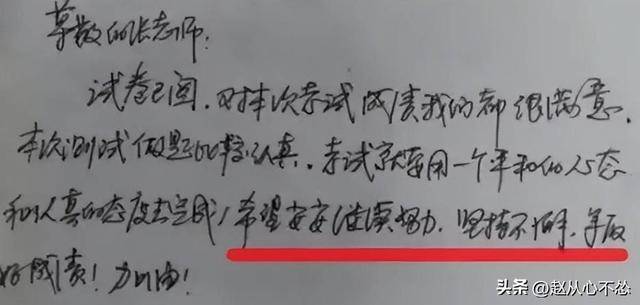 尊敬的张老师:
试卷已阅,对本次考试成绩我们都很满意,
本次测试做题比较认真,考试就要用一个平和的心态
和认真的态度去完成,希望安安继续努力,坚持不懈,争取
好成绩!加油!
头条 @赵从心不怂